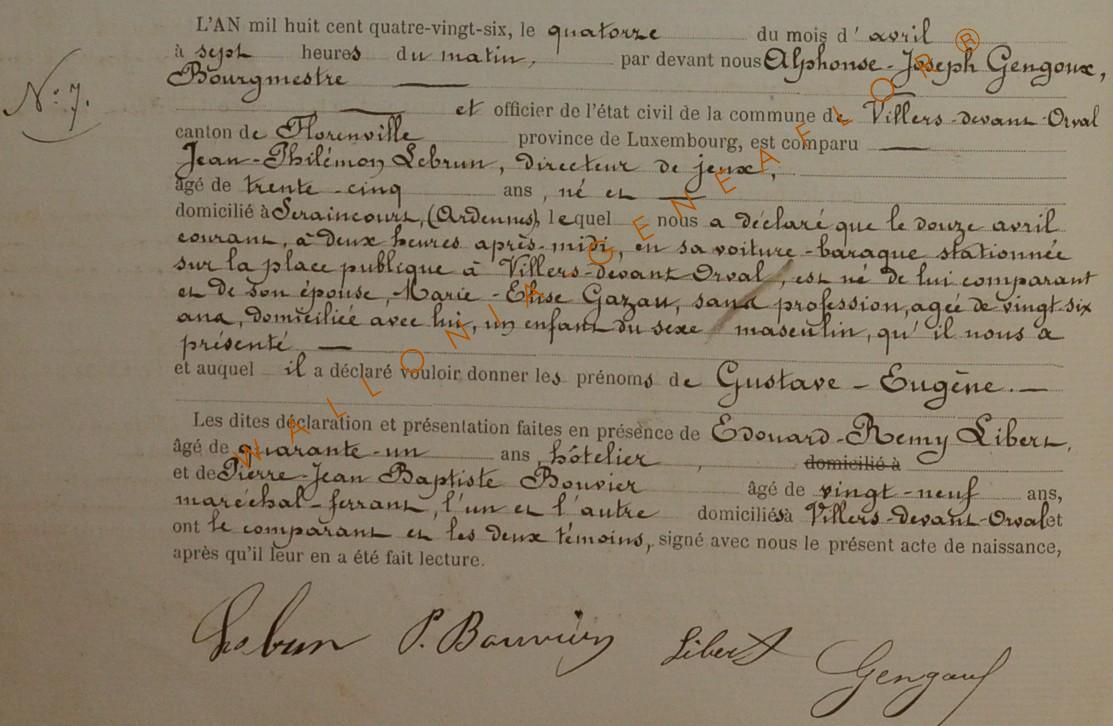 L'AN mil huit cent quatre-vingt-six, le quatorze du mois d'avril
à sept heures du matin, par devant nous Alphonse-Joseph Gengoux,
Bourgmestre
N° 7.
et officier de l'état civil de la commune de Villers-devant-Orval
canton de Florenville province de Luxembourg, est comparu
Jean-Philémon Lebrun, directeur de jeux,
âgé de trente-cinq ans, né et
domicilié à Seraincourt, (Ardennes), lequel nous a déclaré que le douze avril
courant, à deux heures après-midi, en sa voiture-baraque stationnée
sur la place publique à Villers-devant Orval, est né de lui comparant
et de son épouse, Marie-Elise Gazau, sans profession, agée de vingt-six
ans, domiciliée avec lui, un enfant du sexe masculin, qu'il nous a
présenté
et auquel il a déclaré vouloir donner les prénoms de Gustave-Eugène.
Les dites déclaration et présentation faites en présence de Edouard-Remy Libert,
âgé de quarante-un ans, hôtelier, domicilié à
et de Pierre-Jean Baptiste Bouvier âgé de vingt-neuf ans,
maréchal-ferrant, l'un et l'autre domiciliés à Villers-devant-Orval et
ont le comparant et les deux témoins, signé avec nous le présent acte de naissance,
après qu'il leur en a été fait lecture.
Lebrun P. Bouvier Libert Gengoux
WALLONIA GENEALOR ®